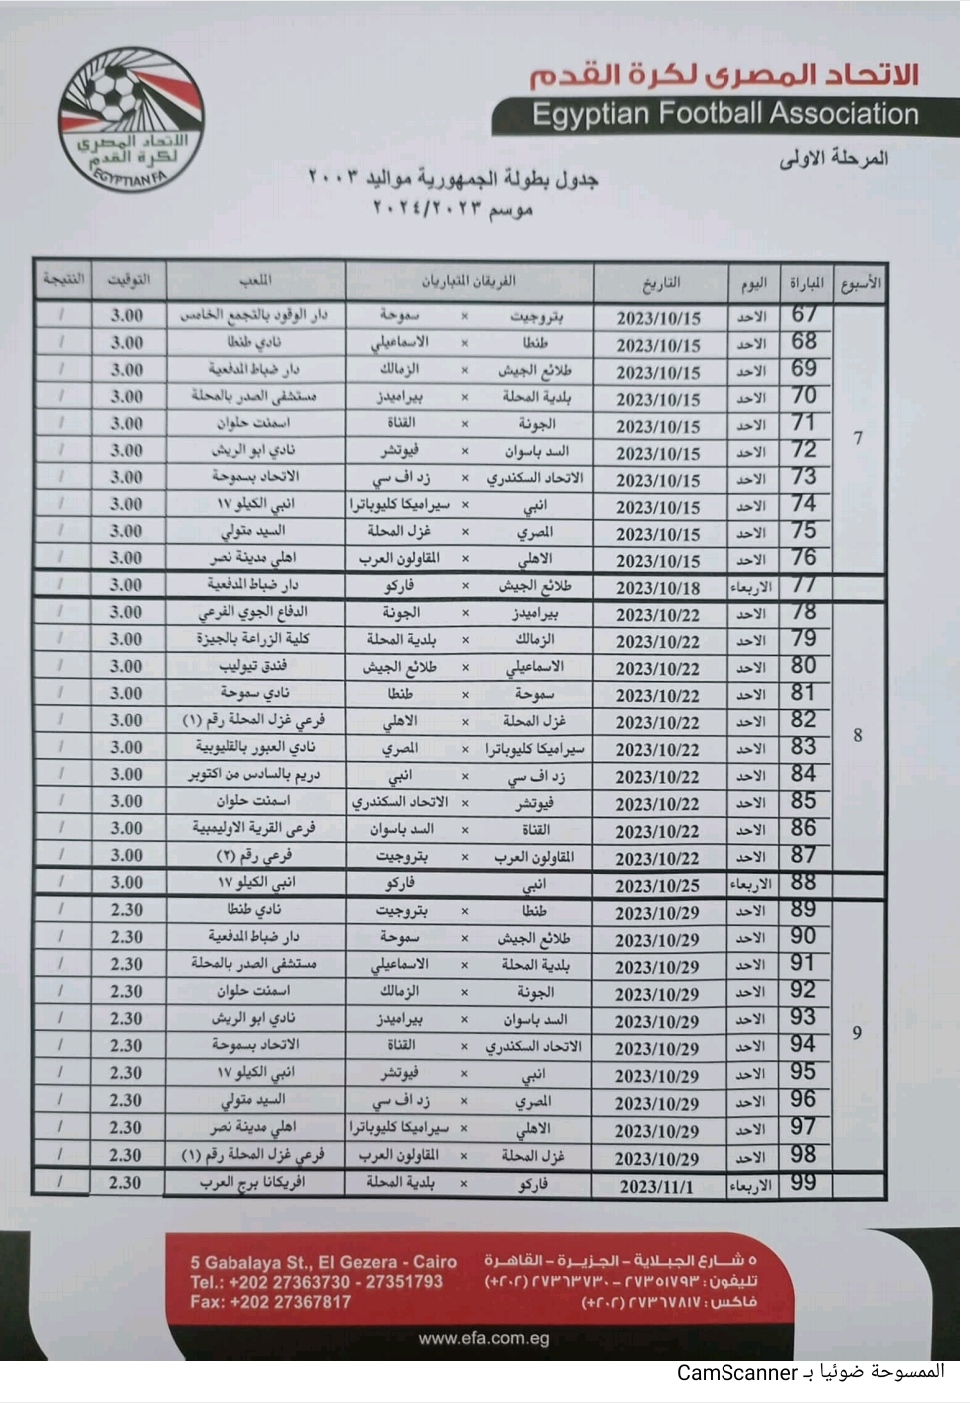 الاتحاد المصرى لكرة القدم
Egyptian Football Association
الاتحاد المصري
لكرة القدم
EGYPTIAN FA
المرحلة الاولى
جدول بطولة الجمهورية مواليد ٢٠٠٣
موسم ٢٠٢٤/٢٠٢٣
الأسبوع المباراة اليوم التاريخ الفريقان المتباريان الملعب التوقيت النتيجة
7
67 الاحد 2023/10/15 بتروجيت × سموحة دار الوقود بالتجمع الخامس 3.00 /
68 الاحد 2023/10/15 طنطا × الاسماعيلي نادي طنطا 3.00 /
69 الاحد 2023/10/15 طلائع الجيش × الزمالك دار ضباط المدفعية 3.00 /
70 الاحد 2023/10/15 بلدية المحلة × بيراميدز مستشفى الصدر بالمحلة 3.00 /
71 الاحد 2023/10/15 الجونة × القناة اسمنت حلوان 3.00 /
72 الاحد 2023/10/15 السد باسوان × فيوتشر نادي ابو الريش 3.00 /
73 الاحد 2023/10/15 الاتحاد السكندري × زد اف سي الاتحاد بسموحة 3.00 /
74 الاحد 2023/10/15 انبي × سيراميكا كليوباترا انبي الكيلو ١٧ 3.00 /
75 الاحد 2023/10/15 المصري × غزل المحلة السيد متولي 3.00 /
76 الاحد 2023/10/15 الاهلي × المقاولون العرب اهلي مدينة نصر 3.00 /
77 الاربعاء 2023/10/18 طلائع الجيش × فاركو دار ضباط المدفعية 3.00 /
8
78 الاحد 2023/10/22 بيراميدز × الجونة الدفاع الجوي الفرعي 3.00 /
79 الاحد 2023/10/22 الزمالك × بلدية المحلة كلية الزراعة بالجيزة 3.00 /
80 الاحد 2023/10/22 الاسماعيلي × طلائع الجيش فندق تيوليب 3.00 /
81 الاحد 2023/10/22 سموحة × طنطا نادي سموحة 3.00 /
82 الاحد 2023/10/22 غزل المحلة × الاهلي فرعي غزل المحلة رقم (١) 3.00 /
83 الاحد 2023/10/22 سيراميكا كليوباترا × المصري نادي العبور بالقليوبية 3.00 /
84 الاحد 2023/10/22 زد اف سي × انبي دريم بالسادس من اكتوبر 3.00 /
85 الاحد 2023/10/22 فيوتشر × الاتحاد السكندري اسمنت حلوان 3.00 /
86 الاحد 2023/10/22 القناة × السد باسوان فرعى القرية الاوليمبية 3.00 /
87 الاحد 2023/10/22 المقاولون العرب × بتروجيت فرعي رقم (٢) 3.00 /
88 الاربعاء 2023/10/25 انبي × فاركو انبي الكيلو ١٧ 3.00 /
9
89 الاحد 2023/10/29 طنطا × بتروجيت نادي طنطا 2.30 /
90 الاحد 2023/10/29 طلائع الجيش × سموحة دار ضباط المدفعية 2.30 /
91 الاحد 2023/10/29 بلدية المحلة × الاسماعيلي مستشفى الصدر بالمحلة 2.30 /
92 الاحد 2023/10/29 الجونة × الزمالك اسمنت حلوان 2.30 /
93 الاحد 2023/10/29 السد باسوان × بيراميدز نادي ابو الريش 2.30 /
94 الاحد 2023/10/29 الاتحاد السكندري × القناة الاتحاد بسموحة 2.30 /
95 الاحد 2023/10/29 انبي × فيوتشر انبي الكيلو ١٧ 2.30 /
96 الاحد 2023/10/29 المصري × زد اف سي السيد متولي 2.30 /
97 الاحد 2023/10/29 الاهلي × سيراميكا كليوباترا اهلي مدينة نصر 2.30 /
98 الاحد 2023/10/29 غزل المحلة × المقاولون العرب فرعي غزل المحلة رقم (١) 2.30 /
99 الاربعاء 2023/11/1 فاركو × بلدية المحلة افريكانا برج العرب 2.30 /
٥ شارع الجبلاية - الجزيرة - القاهرة
تليفون : ٢٧٣٥١٧٩٣ - ٢٧٣٦٣٧٣٠ (٢٠٢+)
فاكس : ٢٧٣٦٧٨١٧ (٢٠٢+)
5 Gabalaya St., El Gezera - Cairo
Tel.: +202 27363730 - 27351793
Fax: +202 27367817
www.efa.com.eg
الممسوحة ضوئيا بـ CamScanner